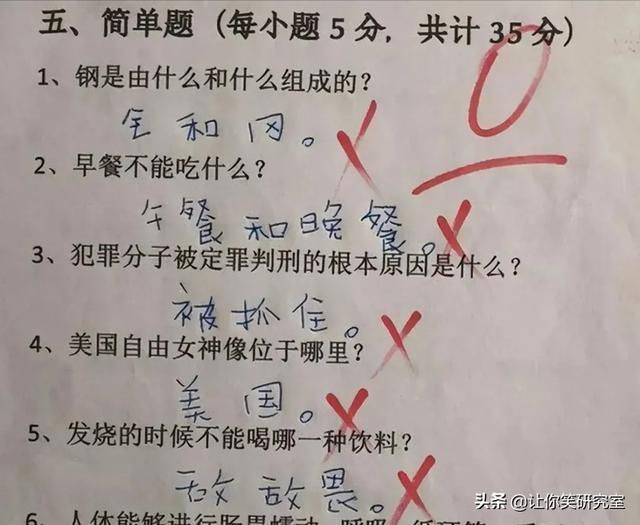 五、简单题（每小题5分，共计35分）
0
1、钢是由什么和什么组成的？
金和冈。
2、早餐不能吃什么？
午餐和晚餐。
3、犯罪分子被定罪判刑的根本原因是什么？
被抓住。
4、美国自由女神像位于哪里？
美国。
5、发烧的时候不能喝哪一种饮料？
敌敌畏。
6、人体能够进行肠胃蠕动、呼吸、循环等
头条 @让你笑研究室